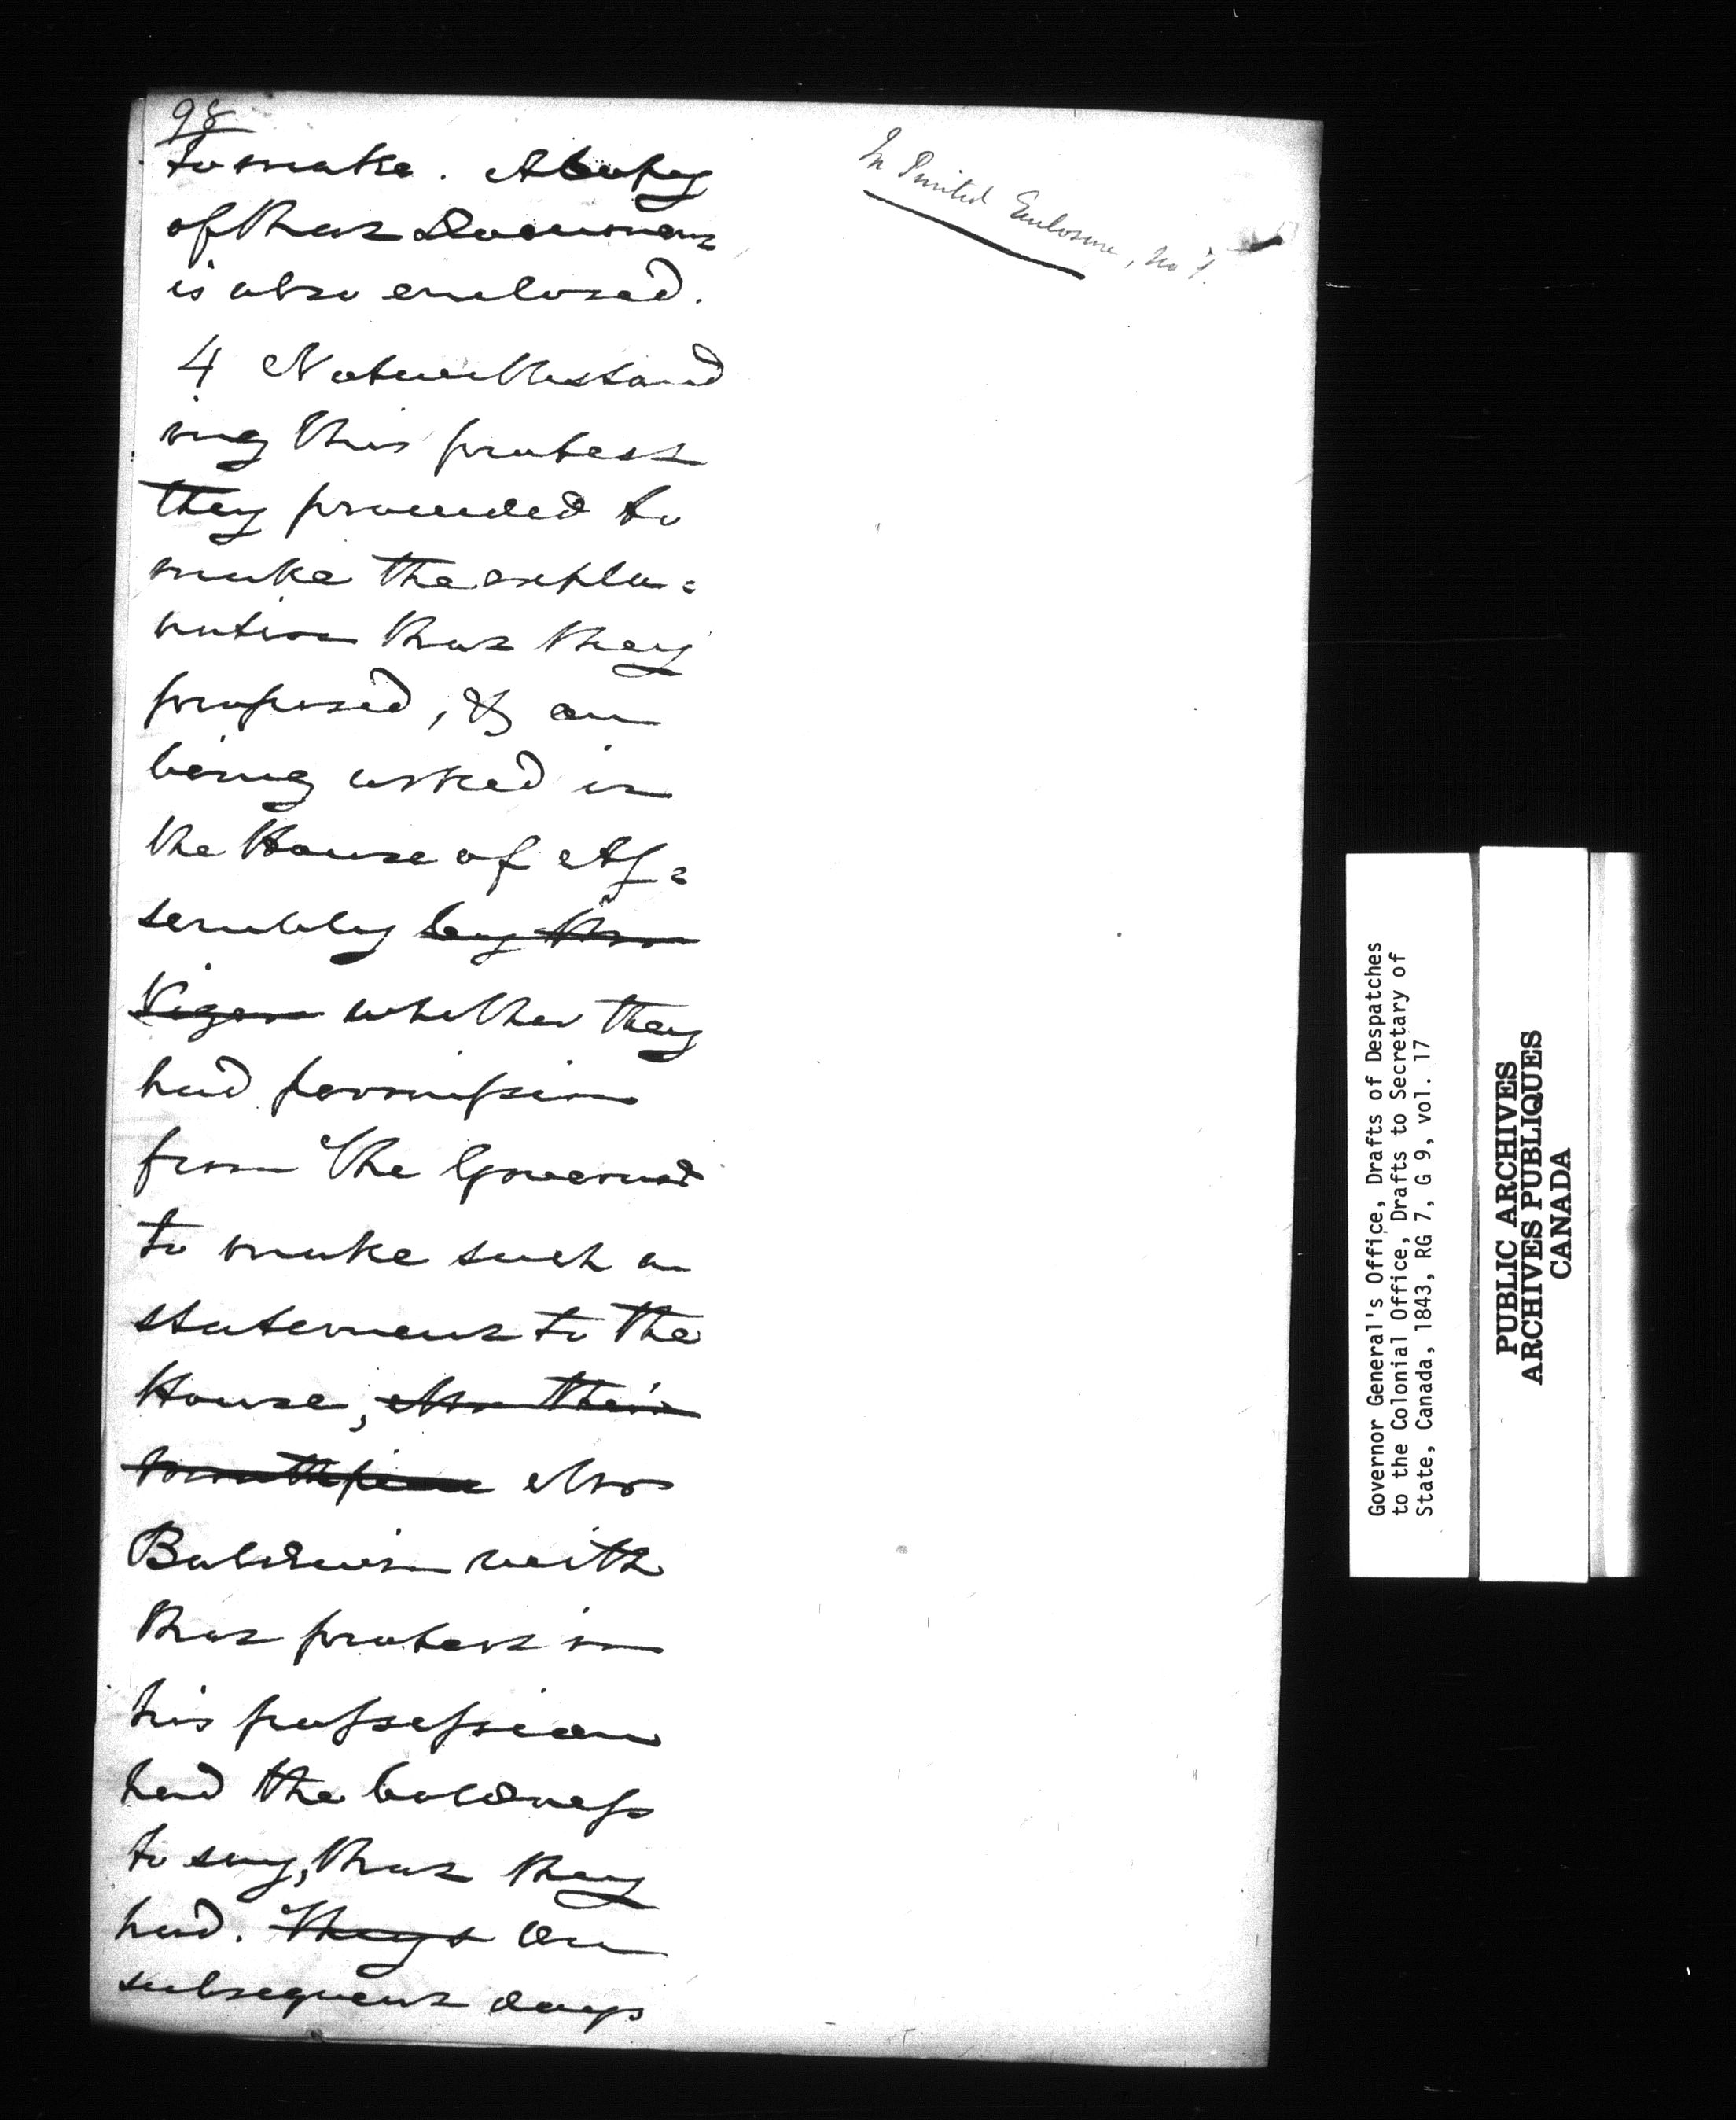 98
to make. A Copy
of that Document
is also enclosed.
4 Notwithstand
ing this protest
they proceeded to
make the expla=
nation that they
proposed, & on
being asked in
the House of As=
sembly by Mr
Viger whether they
had permission
from the Governor
to make such a
statement to the
House, Mr
Baldwin with
that protest in
his possession
had the boldness
to say, that they
had. They On
subsequent days
In Printed Enclosure, No
Governor General's Office, Drafts of Despatches
to the Colonial Office, Drafts to Secretary of
State, Canada, 1843, RG 7, G 9, vol. 17
PUBLIC ARCHIVES
ARCHIVES PUBLIQUES
CANADA